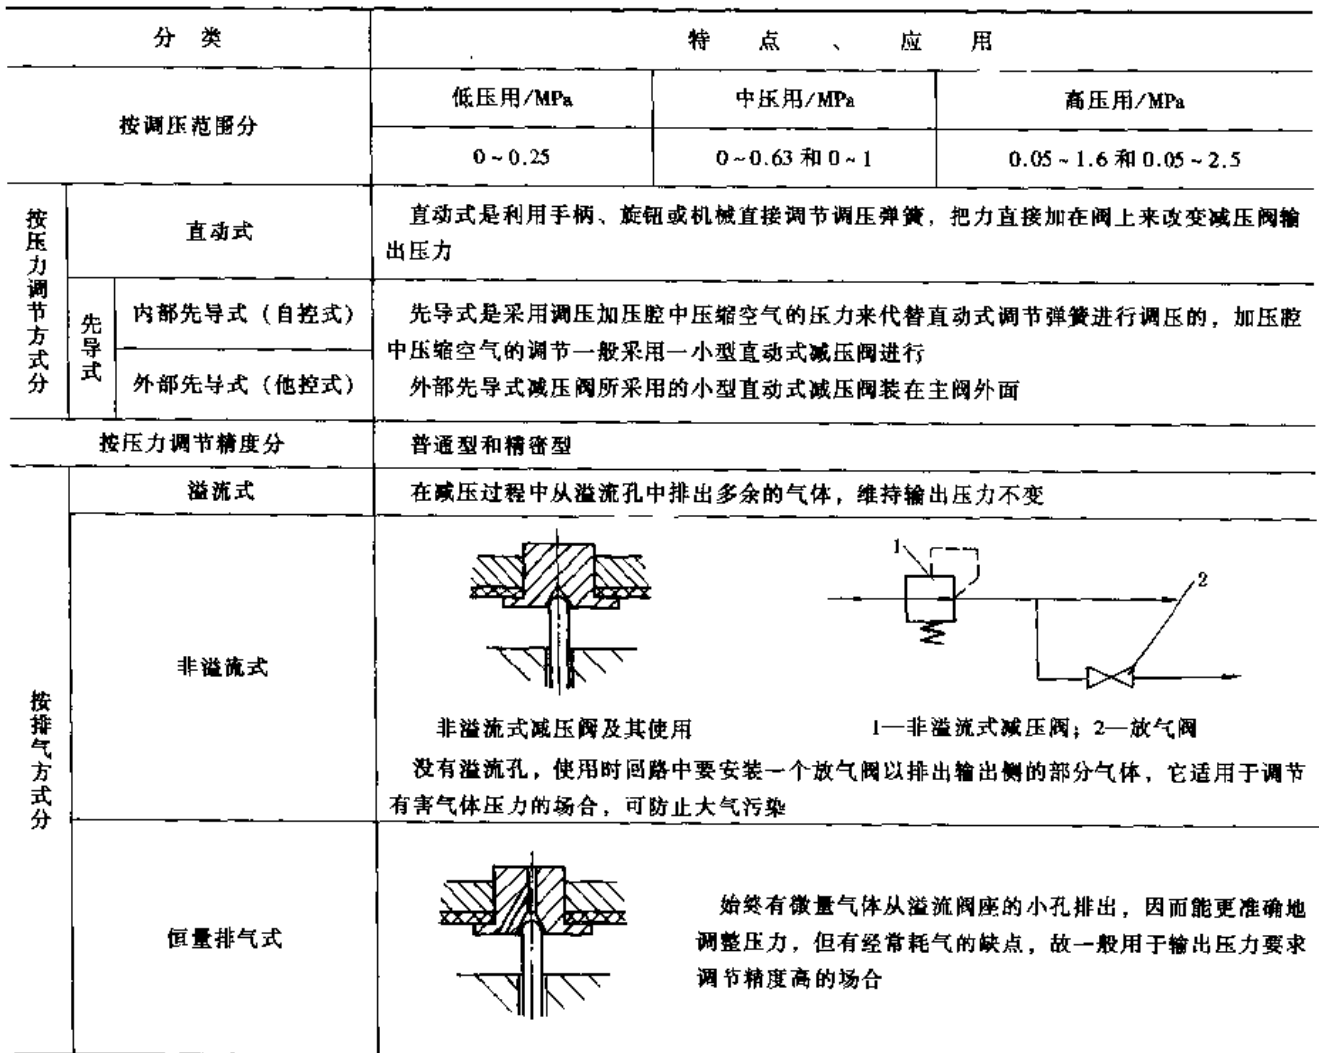 分 类
特 点 、 应 用
按调压范围分
低压用/MPa
中压用/MPa
高压用/MPa
0~0.25
0~0.63 和 0~1
0.05~1.6 和 0.05~2.5
按压力调节方式分
直动式
直动式是利用手柄、旋钮或机械直接调节调压弹簧，把力直接加在阀上来改变减压阀输
出压力
先导式
内部先导式（自控式）
外部先导式（他控式）
先导式是采用调压加压腔中压缩空气的压力来代替直动式调节弹簧进行调压的，加压腔
中压缩空气的调节一般采用一小型直动式减压阀进行
外部先导式减压阀所采用的小型直动式减压阀装在主阀外面
按压力调节精度分
普通型和精密型
按排气方式分
溢流式
在减压过程中从溢流孔中排出多余的气体，维持输出压力不变
非溢流式
1
2
非溢流式减压阀及其使用
1—非溢流式减压阀；2—放气阀
没有溢流孔，使用时回路中要安装一个放气阀以排出输出侧的部分气体，它适用于调节
有害气体压力的场合，可防止大气污染
恒量排气式
始终有微量气体从溢流阀座的小孔排出，因而能更准确地
调整压力，但有经常耗气的缺点，故一般用于输出压力要求
调节精度高的场合